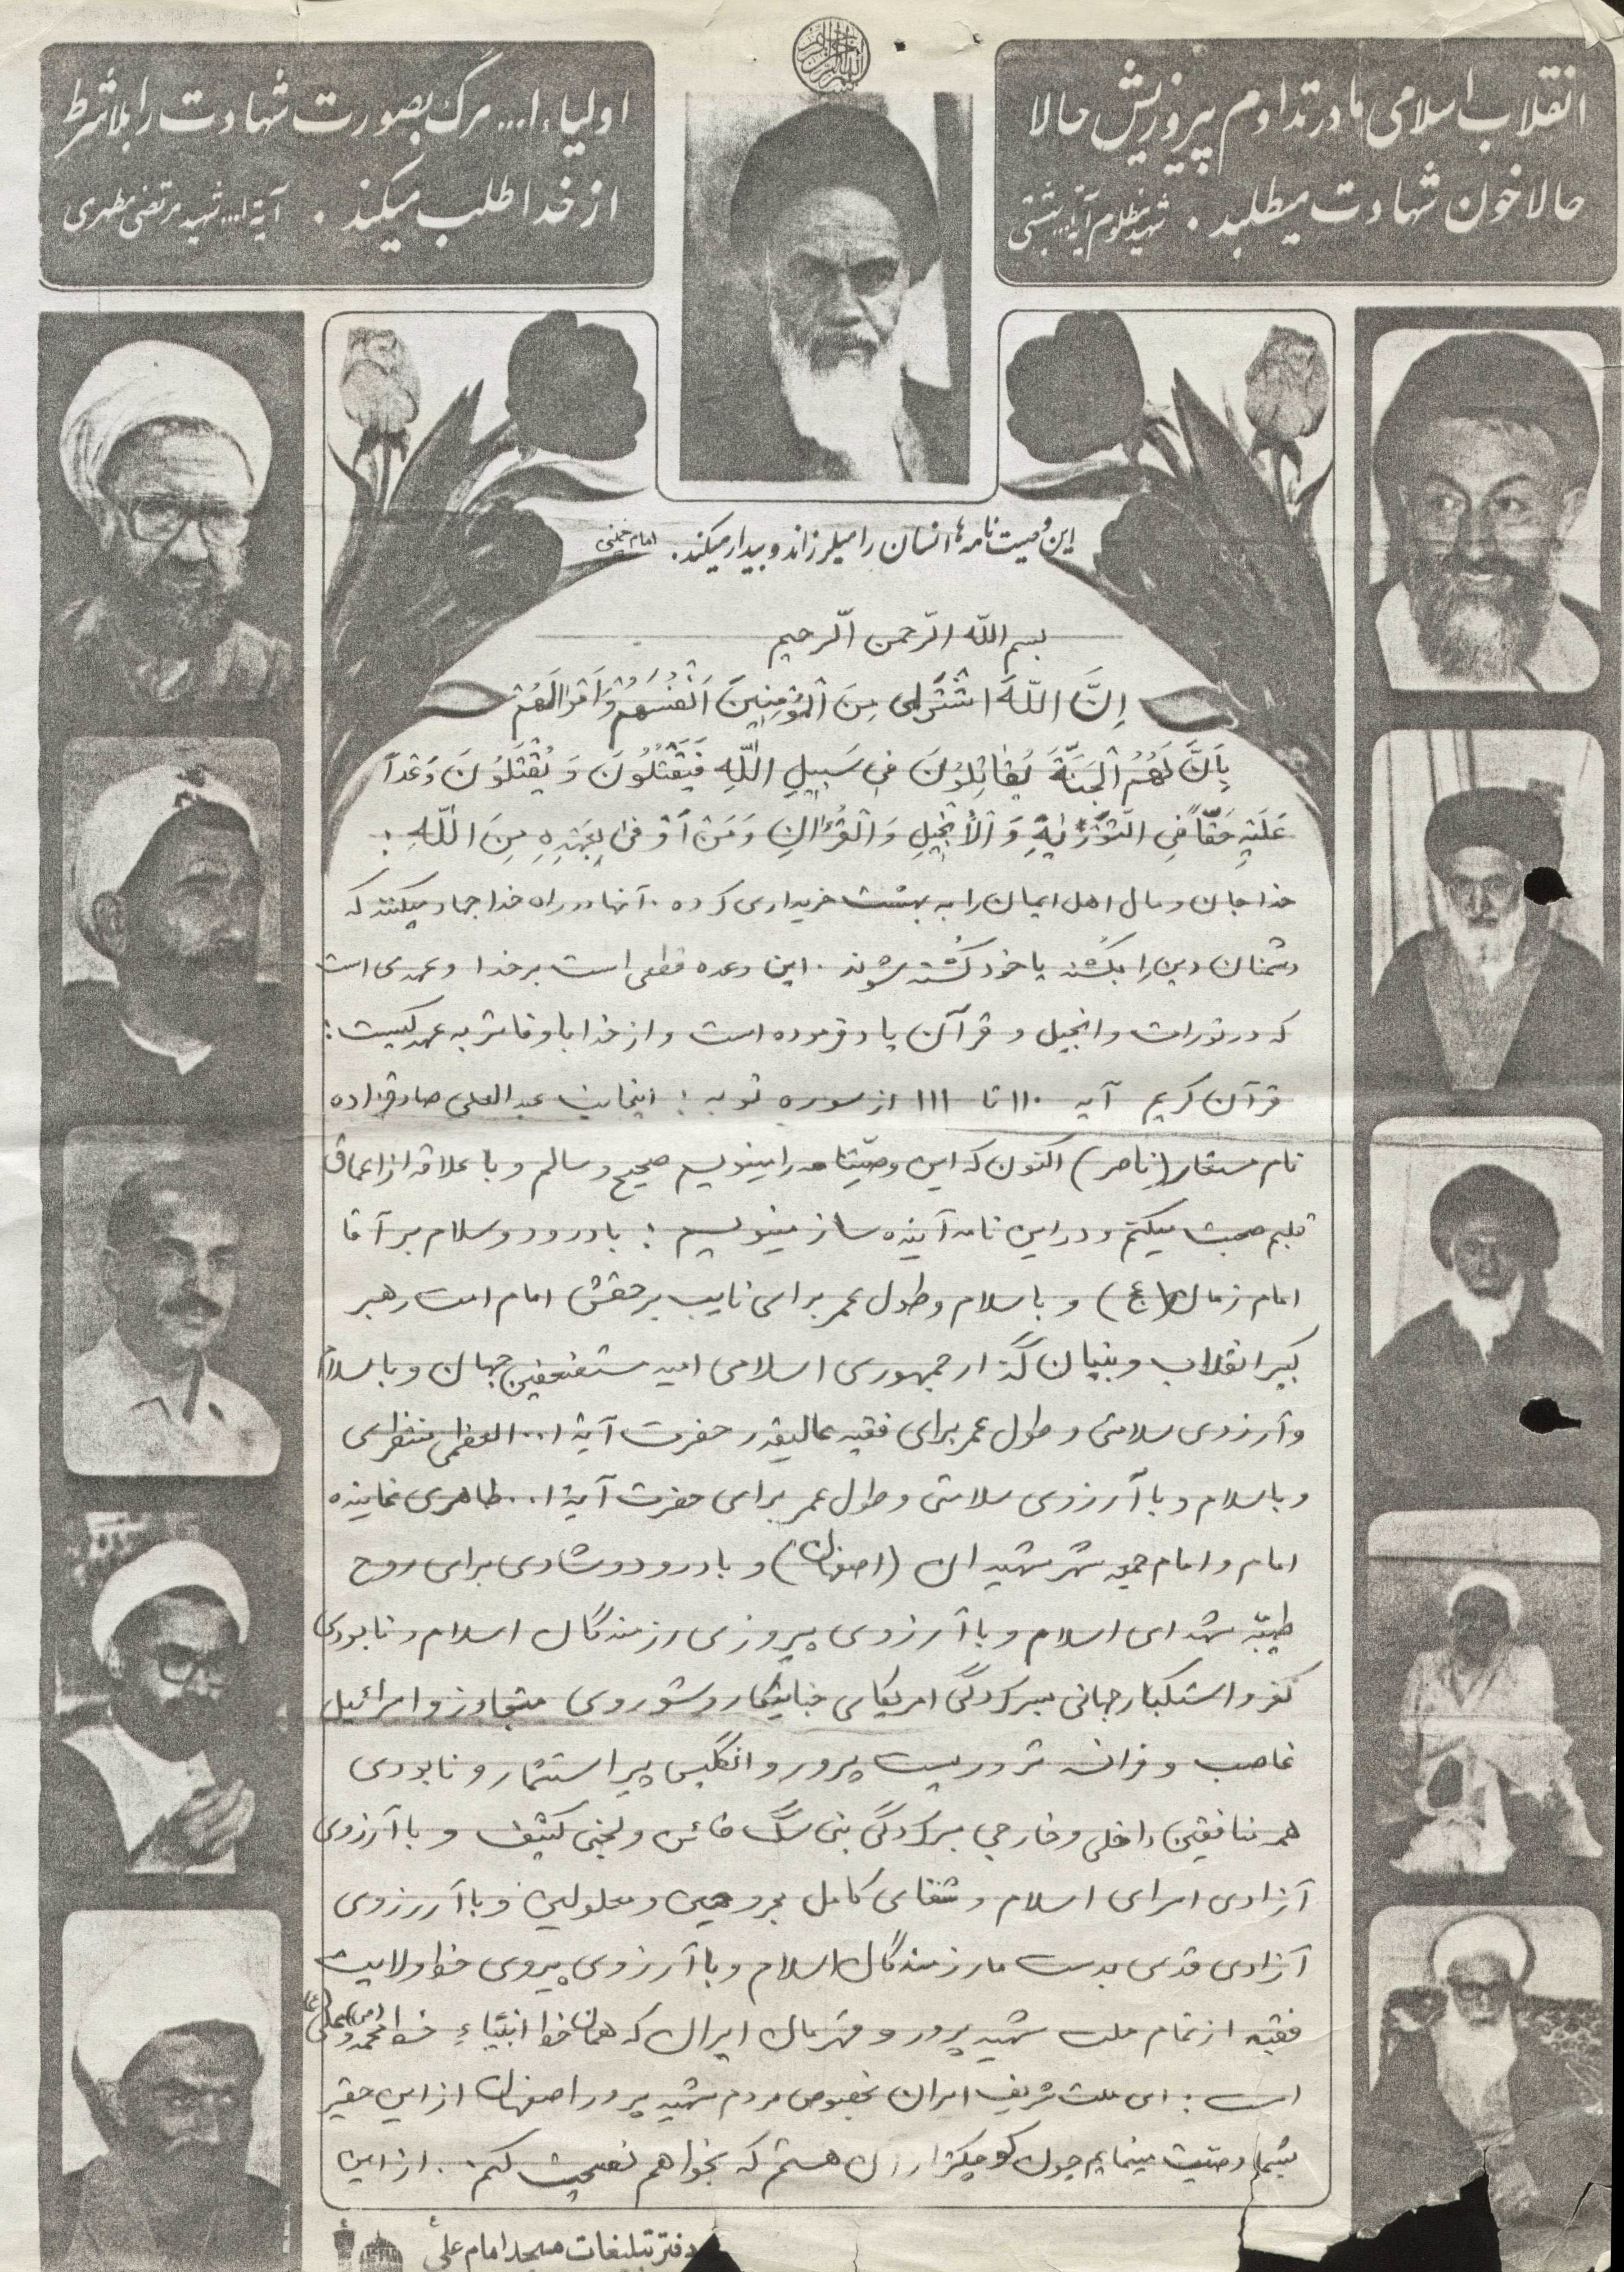 انقلاب اسلامی ما در تداوم پیروزیش حالا
حالا خون شهادت میطلبد. شهید مظلوم آیة ا... بهشتی
اولیاء ا... مرگ بصورت شهادت را بلاشرط
از خدا طلب میکند. آیة ا... شهید مرتضی مطهری
این وصیت نامه ها انسان را میلرزاند و بیدار میکند. امام خمینی
بسم اللّه الرّحمن الرّحیم
اِنَّ اللّهَ اشْتَرٰی مِنَ الْمُؤْمِنِینَ اَنْفُسَهُمْ وَ اَمْوالَهُمْ
بِاَنَّ لَهُمُ الْجَنَّةَ یُقاتِلُونَ فی سَبِیلِ اللّهِ فَیَقْتُلُونَ وَ یُقْتَلُونَ وَعْداً
عَلَیْهِ حَقّاً فِی التَّوْرٰیةِ وَ الْاِنْجِیلِ وَ الْقُرْاٰنِ وَ مَنْ اَوْفٰی بِعَهْدِهِ مِنَ اللّهِ :
خدا جان و مال اهل ایمان را به بهشت خریداری کرده . آنها در راه خدا جهاد میکنند که
دشمنان دین را بکُشند یا خود کُشته شوند . این وعده قطعی است بر خدا و عهدی است
که در تورات و انجیل و قرآن یاد فرموده است و از خدا باوفاتر به عهد کیست :
قرآن کریم آیه ۱۱۰ تا ۱۱۱ از سوره توبه : اینجانب عبدالعلی صادقزاده
نام مستعار (ناصر) اکنون که این وصیّتنامه را مینویسم صحیح و سالم و با علاقه از اعماق
قلبم صحبت میکنم و در این نامه آینده ساز مینویسم : با درود و سلام بر آقا
امام زمان (عج) و با سلام و طول عمر برای نایب برحقش امام امت رهبر
کبیر انقلاب و بنیان گذار جمهوری اسلامی امید مستضعفین جهان و با سلام
و آرزوی سلامتی و طول عمر برای فقیه عالیقدر حضرت آیة ا... العظمی منتظری
و با سلام و با آرزوی سلامتی و طول عمر برای حضرت آیة ا... طاهری نماینده
امام و امام جمعه شهر شهیدان (اصفهان) و با درود و شادی برای روح
طیّبه شهدای اسلام و با آرزوی پیروزی رزمندگان اسلام و نابودی
کفر و استکبار جهانی بسرکردگی امریکای جنایتکار و شوروی متجاوز و اسرائیل
غاصب و فرانسه تروریست پرور و انگلیس پیر استثمار و نابودی
همه منافقین داخلی و خارجی بسرکردگی بنی سگ خائن و لجنی کثیف و با آرزوی
آزادی اسرای اسلام و شفای کامل مجروحین و معلولین و با آرزوی
آزادی قدس بدست ما رزمندگان اسلام و با آرزوی پیروی خط ولایت
فقیه از تمام ملت شهید پرور و قهرمان ایران که همان خط انبیاء خط محمد (ص) و علی (ع)
است : ای ملت شریف ایران بخصوص مردم شهید پرور اصفهان از این حقیر
بشما وصیت مینمایم چون کوچکتر از آن هستم که بخواهم نصیحت کنم . از این
دفتر تبلیغات مسجد امام علی